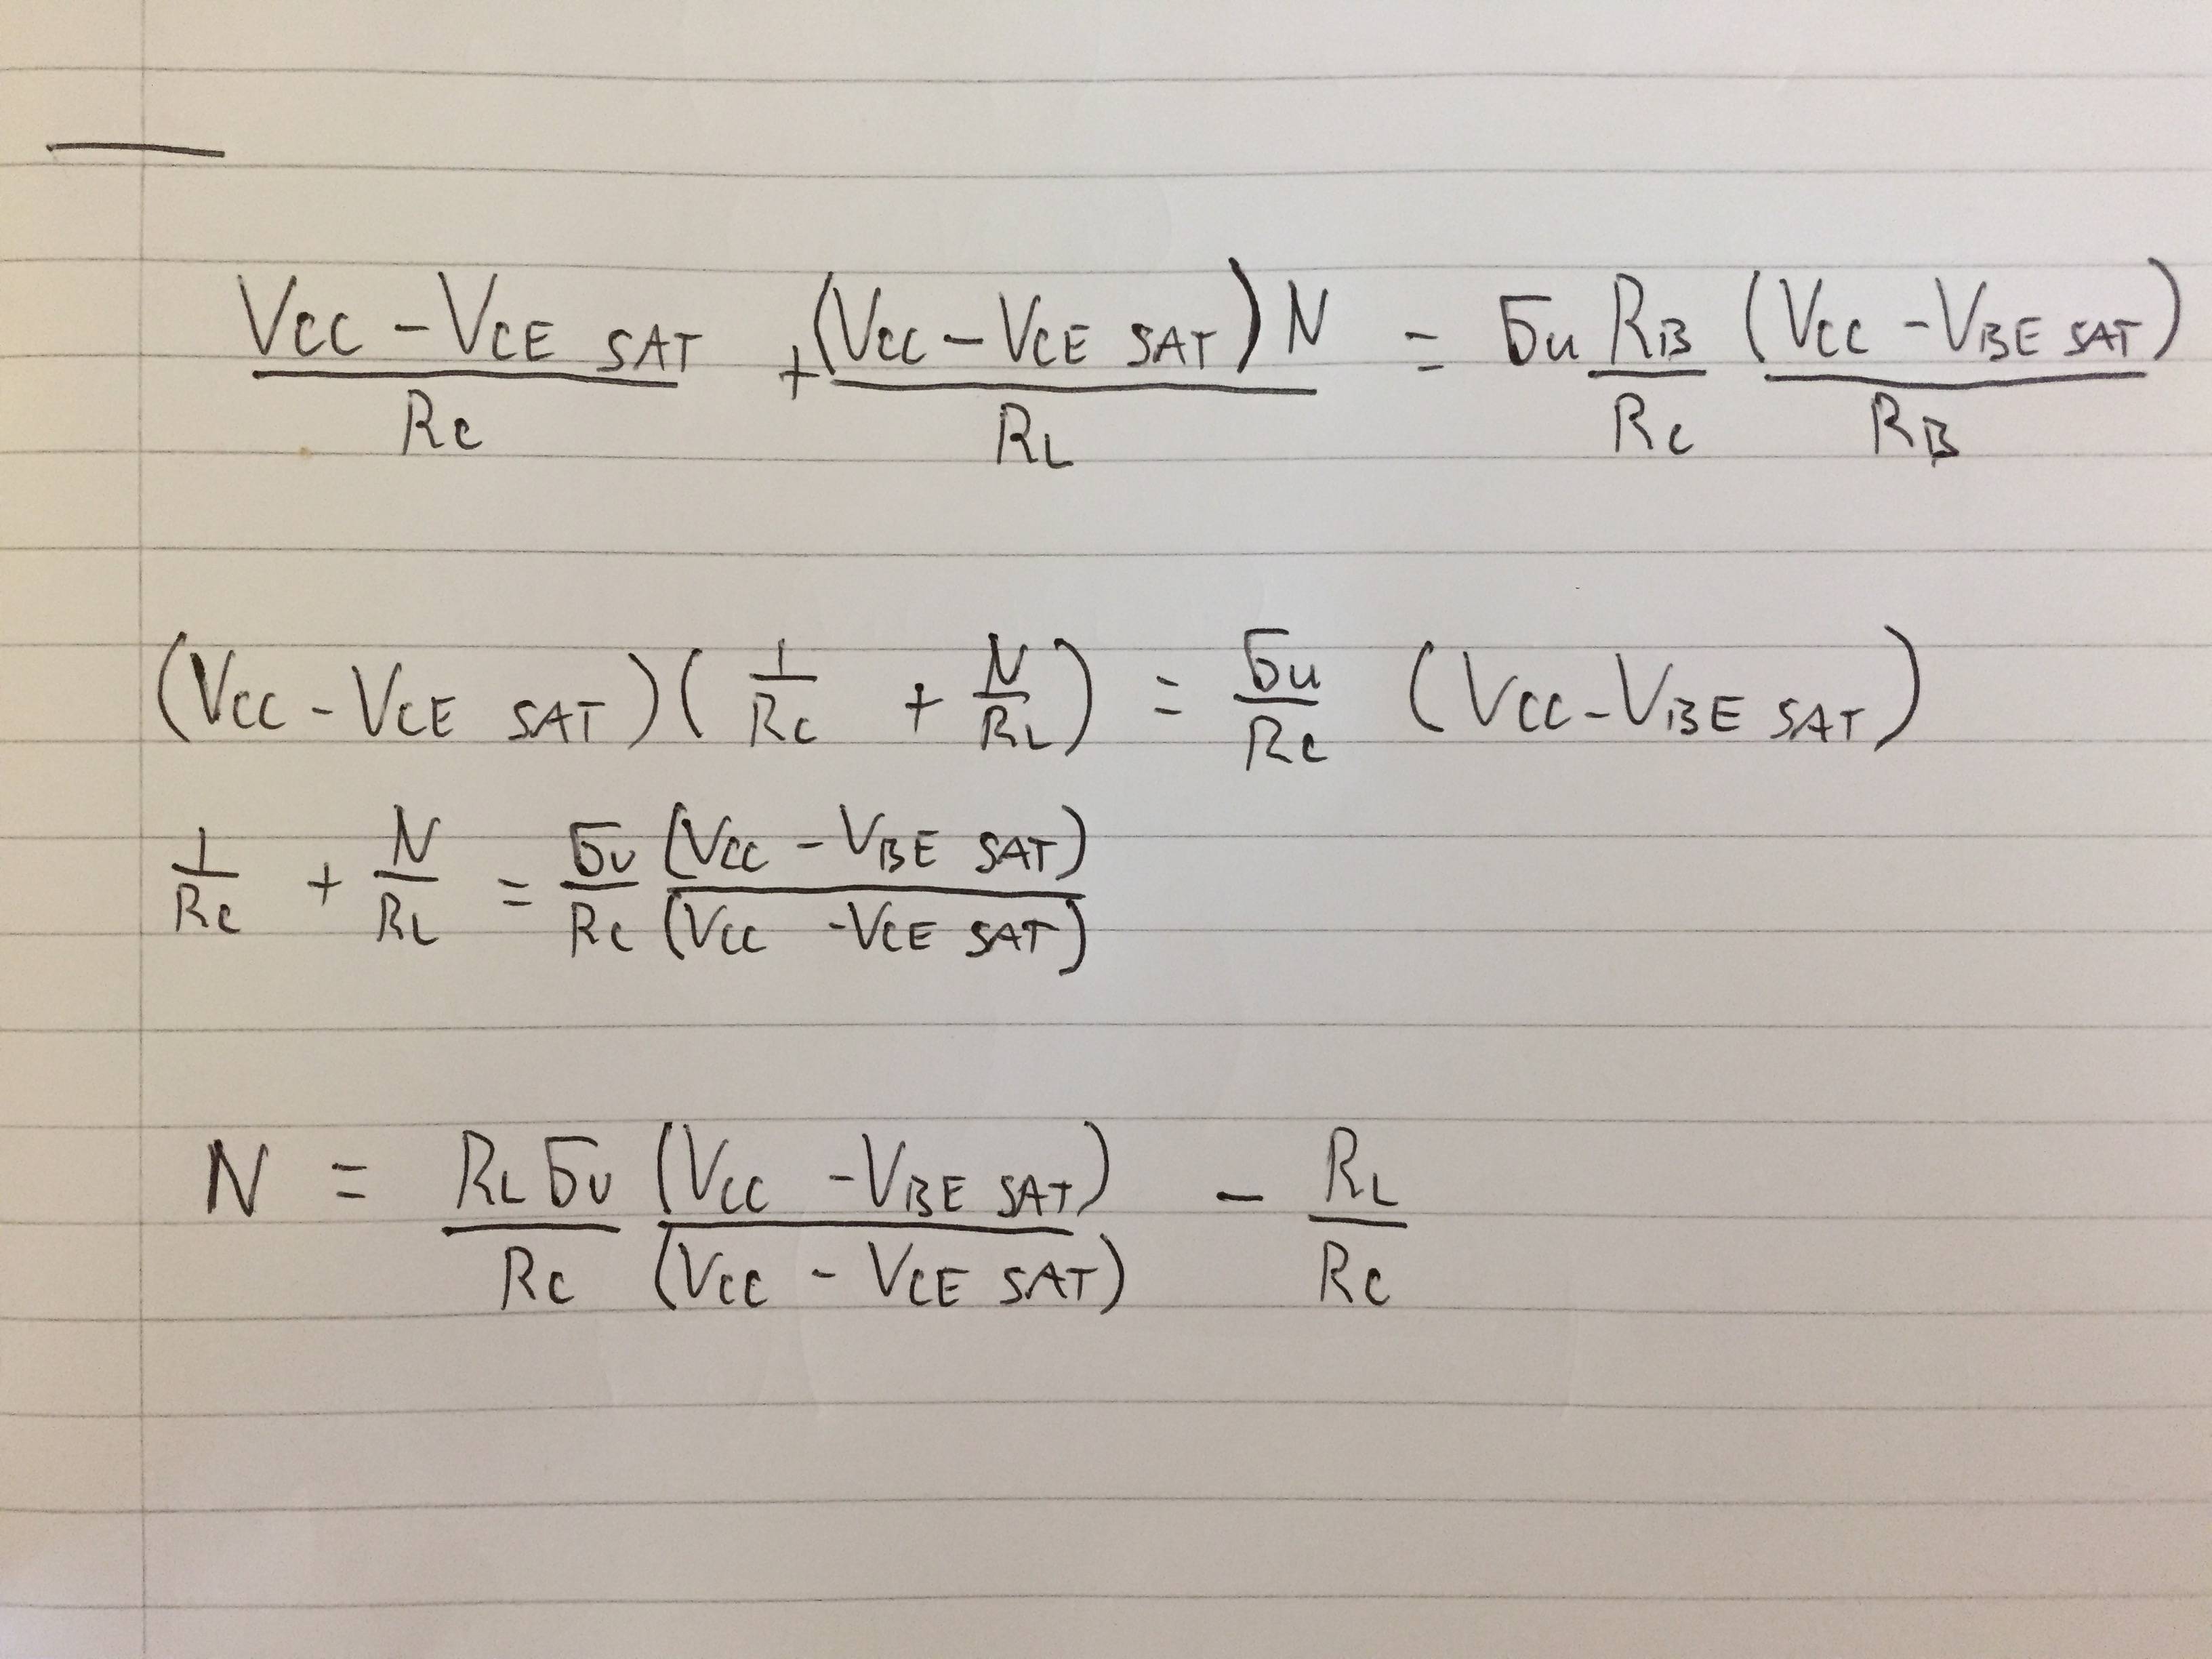 (VCC - VCE SAT)/RC + (VCC - VCE SAT)N/RL = Би RB/RC (VCC - VBE SAT)/RB
(VCC - VCE SAT)(1/RC + N/RL) = Би/RC (VCC - VBE SAT)
1/RC + N/RL = Би/RC (VCC - VBE SAT)/(VCC - VCE SAT)
N = RL Би/RC (VCC - VBE SAT)/(VCC - VCE SAT) - RL/RC